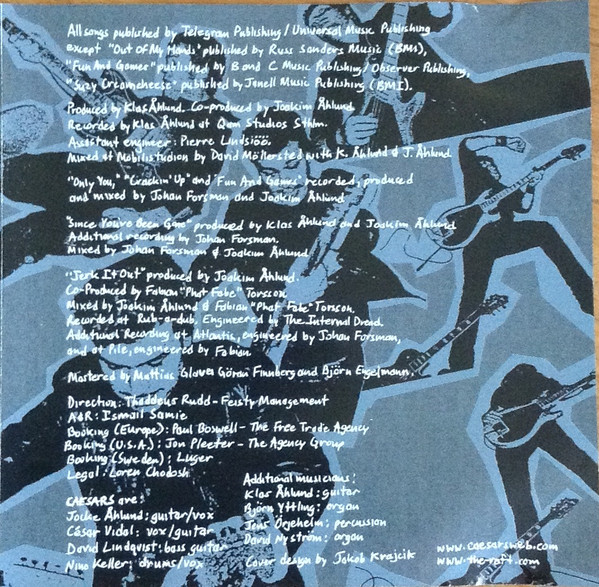 All songs published by Telegram Publishing/Universal Music Publishing
except "Out Of My Hands" published by Russ Sanders Music (BMI),
"Fun And Games" published by B and C Music Publishing/Observer Publishing,
"Suzy Creamcheese" published by Jonell Music Publishing (BMI).
Produced by Klas Åhlund. Co-produced by Joakim Åhlund
Recorded by Klas Åhlund at Qem Studios Sthlm.
Assistant engineer: Pierre Lindsjöö,
Mixed at Mobilistudion by David Möllersted with K. Åhlund & J. Åhlund
"Only You," "Crackin' Up" and "Fun And Games" recorded, produced
and mixed by Johan Forsman and Joakim Åhlund
"Since You've Been Gone" produced by Klas Åhlund and Joakim Åhlund
Additional recording by Johan Forsman.
Mixed by Johan Forsman & Joakim Åhlund
"Jerk It Out" produced by Joakim Åhlund.
Co-Produced by Fabian "Phat Fabe" Torsson.
Mixed by Joakim Åhlund & Fabian "Phat Fabe" Torsson.
Recorded at Rub-a-dub, Engineered by The Internal Dread.
Additional Recording at Atlantis, engineered by Johan Forsman,
and at Pile, engineered by Fabian.
Mastered by Mattias Glavå, Göran Finnberg and Björn Engelmann.
Direction: Thaddeus Rudd - Feisty Management
A&R: Ismail Samie
Booking (Europe): Paul Boswell - The Free Trade Agency
Booking (U.S.A.): Jon Pleeter - The Agency Group
Booking (Sweden): Luger
Legal: Loren Chodosh
CAESARS are:
Jocke Åhlund: guitar/vox
César Vidal: vox/guitar
David Lindqvist: bass guitar
Nino Keller: drums/vox
Additional musicians:
Klas Åhlund: guitar
Björn Yttling: organ
Jens Örjeheim: percussion
David Nyström: organ
Cover design by Jakob Krajcik
www.caesarsweb.com
www.the-raft.com